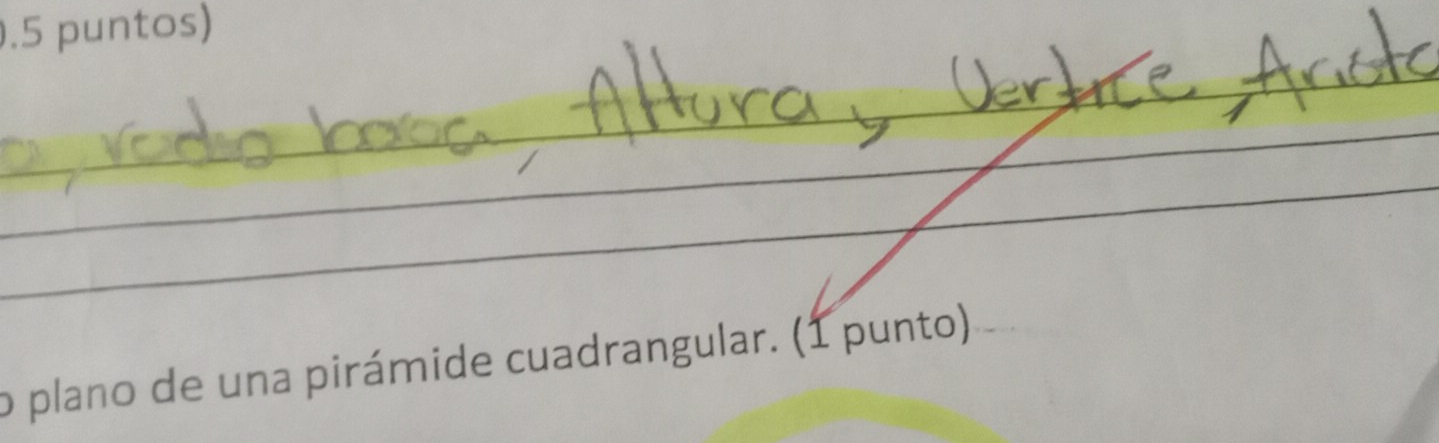 0.5 puntos)
a, radio basa, Altura, Vertice, Arista
o plano de una pirámide cuadrangular. (1 punto)